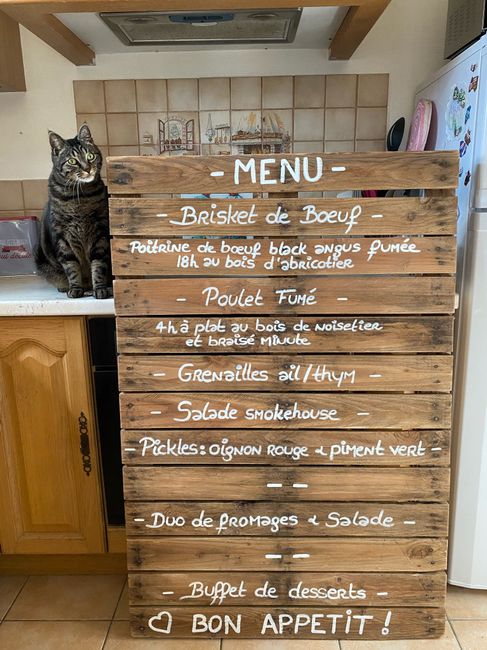 - MENU -
- Brisket de Boeuf -
Poitrine de bœuf black angus fumée
18h au bois d'abricotier
- Poulet Fumé -
4h à plat au bois de noisetier
et braisé minute
- Grenailles ail/thym -
- Salade smokehouse -
- Pickles: oignon rouge & piment vert -
- -
- Duo de fromages & Salade -
- -
- Buffet de desserts -
♡ BON APPETIT !